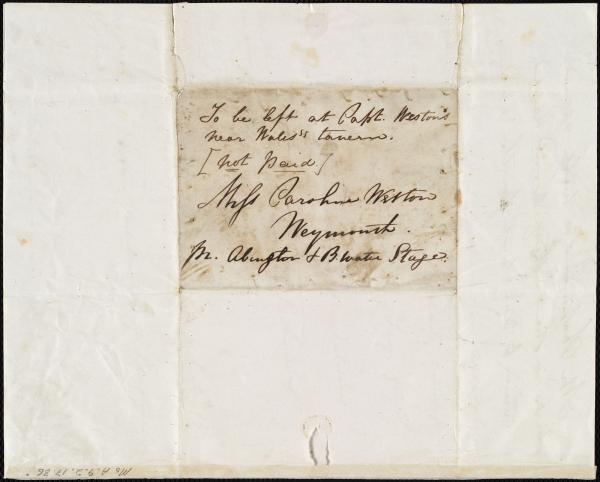 To be left at Capt. Weston's
near Wales's tavern.
[not paid]
Miss Caroline Weston
Weymouth.
pr. Abington & B.water Stage.
Ms. A.9.2.17.36